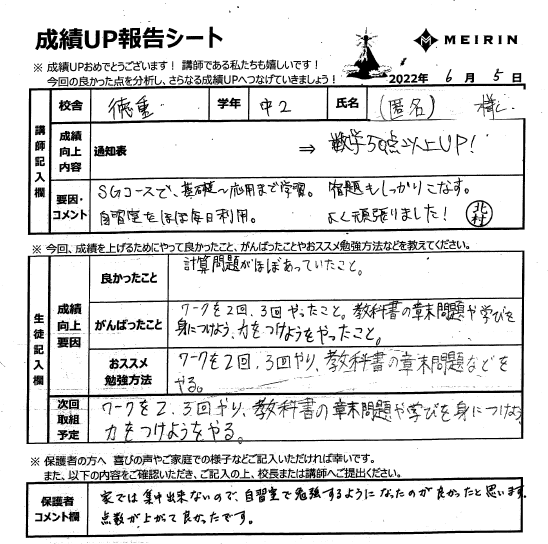 成績UP報告シート
MEIRIN
※ 成績UPおめでとうございます！ 講師である私たちも嬉しいです！
今回の良かった点を分析し、さらなる成績UPへつなげていきましょう！
2022年 6月 5日
講師記入欄
校舎 徳重 学年 中2 氏名 (匿名) 様
成績向上内容 通知表 ⇒ 数学50点以上UP!
要因・コメント SGコースで、基礎〜応用まで学習。宿題もしっかりこなす。
自習室をほぼ毎日利用。 よく頑張りました！ 北村
※ 今回、成績を上げるためにやって良かったこと、がんばったことやおススメ勉強方法などを教えてください。
生徒記入欄
成績向上要因
良かったこと 計算問題がほぼあっていたこと。
がんばったこと ワークを2回、3回やったこと。教科書の章末問題や学びを
身につけよう、力をつけようをやったこと。
おススメ勉強方法 ワークを2回、3回やり、教科書の章末問題などを
やる。
次回取組予定 ワークを2、3回やり、教科書の章末問題や学びを身につけよう
力をつけようをやる。
※ 保護者の方へ 喜びの声やご家庭での様子などご記入いただければ幸いです。
また、以下の内容をご確認いただき、ご記入の上、校長または講師へご提出ください。
保護者コメント欄 家では集中出来ないので、自習室で勉強するようになったのが良かったと思います。
点数が上がて良かったです。